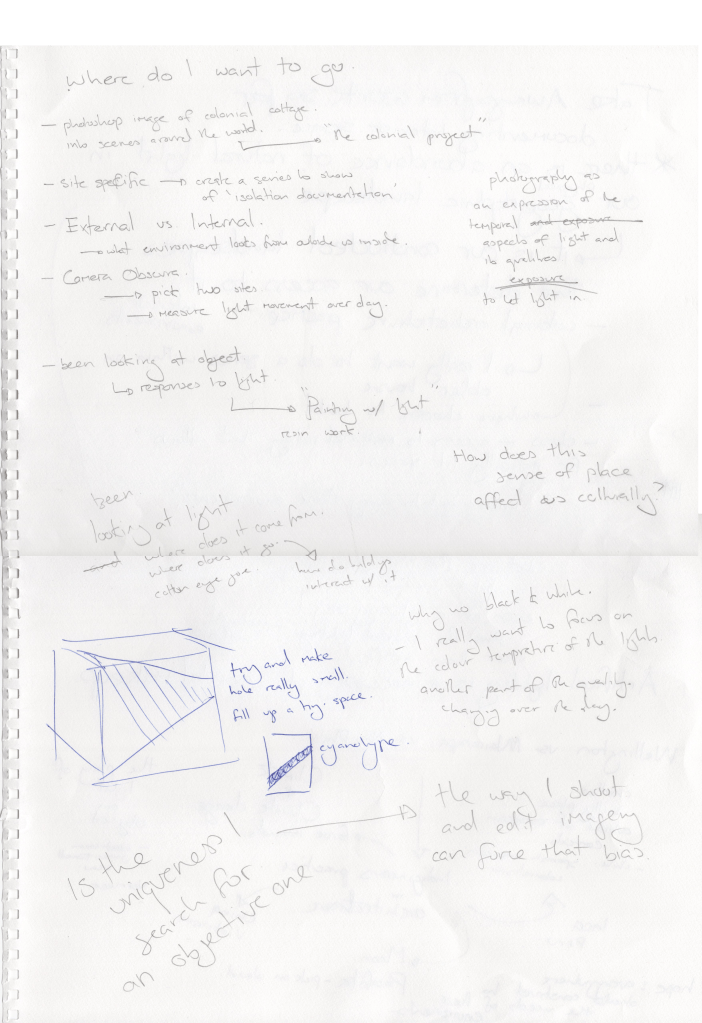 where do I want to go.
- photoshop image of colonial cottage
into scenes around the world.
"the colonial project"
- site specific → create a series to show
of 'isolation documentation'
- External vs. Internal.
→ what environment looks from outside vs inside
- Camera Obscura.
→ pick two sites
→ measure light movement over day.
photography as
an expression of the
temporal and exposure
aspects of light and
its qualities
exposure
to let light in
- been looking at object
↳ responses to light.
→ "Painting w/ light"
resin work.
How does this
sense of place
affect us culturally?
been
looking at light
and where does it come from.
where does it go.
cotton eye joe.
how do buildings
interact w/ it
why no black & white.
- I really want to focus on
the colour temperature of the lights
another part of the quality.
changing over the day.
try and make
hole really small.
fill up a tiny space.
cyanotype.
Is the
uniqueness I
search for
an objective one
→ the way I shoot
and edit imagery
can force that bias.